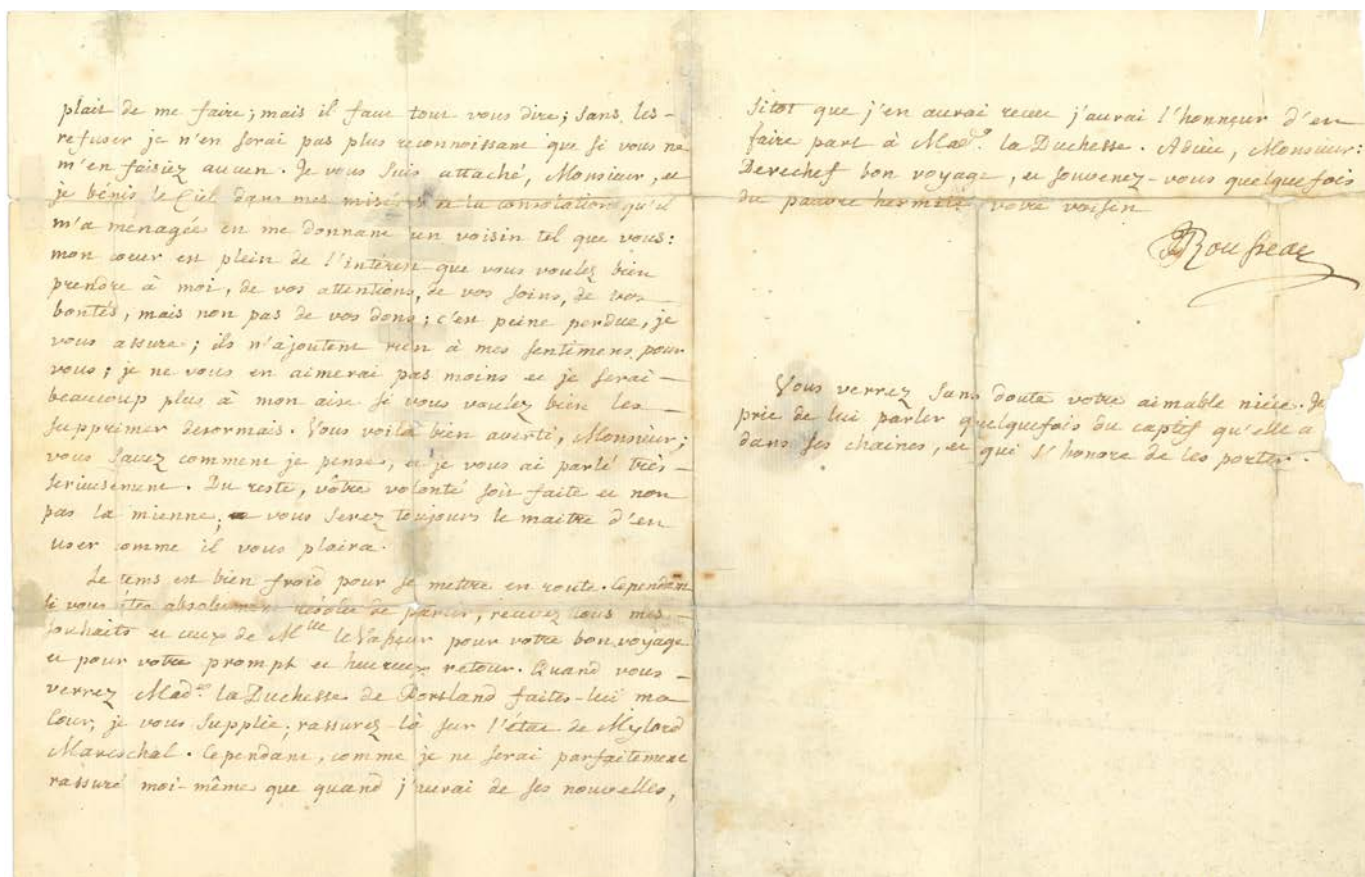 plait de me faire; mais il faut tout vous dire; sans les
refuser je n'en serai pas plus reconnoissant que si vous ne
m'en faisiez aucun. Je vous suis attaché, Monsieur, et
je bénis le Ciel dans mes miséres de la consolation qu'il
m'a ménagée en me donnant un voisin tel que vous:
mon coeur est plein de l'intérest que vous voulez bien
prendre à moi, de vos attentions, de vos soins, de vos
bontés, mais non pas de vos dons; c'est peine perdue, je
vous assure; ils n'ajoutent rien à mes sentimens pour
vous; je ne vous en aimerai pas moins et je serai
beaucoup plus à mon aise si vous voulez bien les
supprimer desormais. Vous voila bien averti, Monsieur;
vous savez comment je pense, et je vous ai parlé très
serieusement. Du reste, vôtre volonté soit faite et non
pas la mienne; vous serez toujours le maitre d'en
user comme il vous plaira.
Le tems est bien froid pour se mettre en route. Cependant
si vous étes absolument résolu de partir, recevez tous mes
souhaits et ceux de Mlle le Vasseur pour votre bon voyage
et pour votre prompt et heureux retour. Quand vous
verrez Made. la Duchesse de Portland faites-lui ma
Cour, je vous supplie; rassurez-là sur l'état de Mylord
Mareschal. Cependant, comme je ne serai parfaitement
rassuré moi-même que quand j'aurai de ses nouvelles,
sitot que j'en aurai receu j'aurai l'honneur d'en
faire part à Made. la Duchesse. Adieu, Monsieur:
Derechef bon voyage, et souvenez-vous quelquefois
du pauvre hermite votre voisin
JJRousseau
Vous verrez sans doute votre aimable niéce. Je
prie de lui parler quelquefois du captif qu'elle a
dans ses chaines, et qui s'honore de les porter.